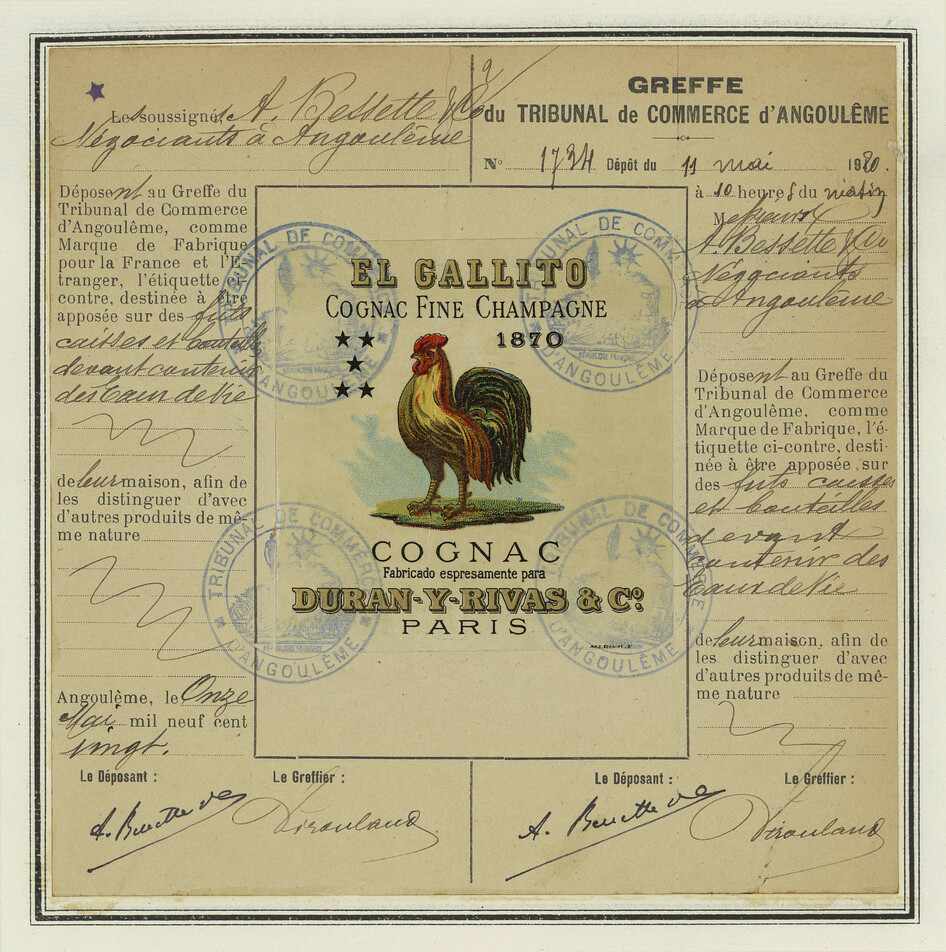 Les soussignés A. Bessette & Co
Négociants à Angoulême
GREFFE
du TRIBUNAL de COMMERCE d'ANGOULÊME
N° 1734 Dépôt du 11 mai 1920.
à 10 heures du matin
Messieurs
A. Bessette & Co
Négociants
à Angoulême
Déposent au Greffe du
Tribunal de Commerce
d'Angoulême, comme
Marque de Fabrique
pour la France et l'É-
tranger, l'étiquette ci-
contre, destinée à être
apposée sur des fûts
caisses et bouteilles
devant contenir
des Eaux de Vie
de leur maison, afin de
les distinguer d'avec
d'autres produits de mê-
me nature
Angoulême, le Onze
Mai mil neuf cent
vingt.
EL GALLITO
COGNAC FINE CHAMPAGNE
1870
COGNAC
Fabricado espresamente para
DURAN-Y-RIVAS & Cº
PARIS
TRIBUNAL DE COMMERCE
D'ANGOULÊME
RÉPUBLIQUE FRANÇAISE
TRIBUNAL DE COMMERCE
D'ANGOULÊME
RÉPUBLIQUE FRANÇAISE
TRIBUNAL DE COMMERCE
D'ANGOULÊME
TRIBUNAL DE COMMERCE
D'ANGOULÊME
Déposent au Greffe du
Tribunal de Commerce
d'Angoulême, comme
Marque de Fabrique, l'é-
tiquette ci-contre, desti-
née à être apposée sur
des fûts caisses
et bouteilles
devant
contenir des
Eaux de Vie
de leur maison, afin de
les distinguer d'avec
d'autres produits de mê-
me nature
Le Déposant :
Le Greffier :
A. Bessette & Co
Le Déposant :
Le Greffier :
A. Bessette & Co